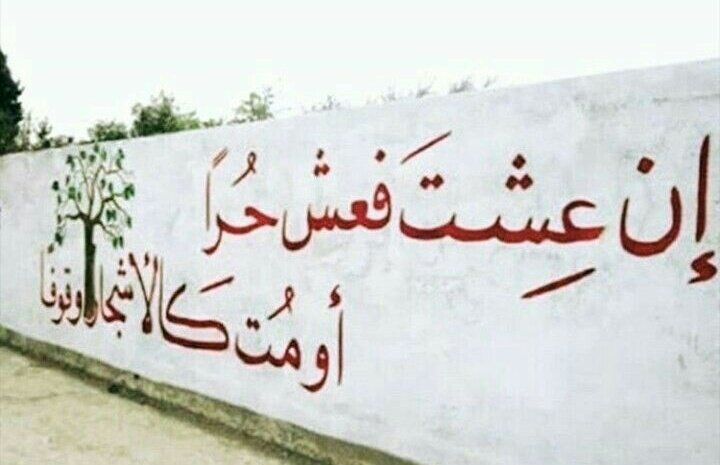 إن عِشتَ فعش حُرًا
أو مُت كَالأشجار وقوفًا